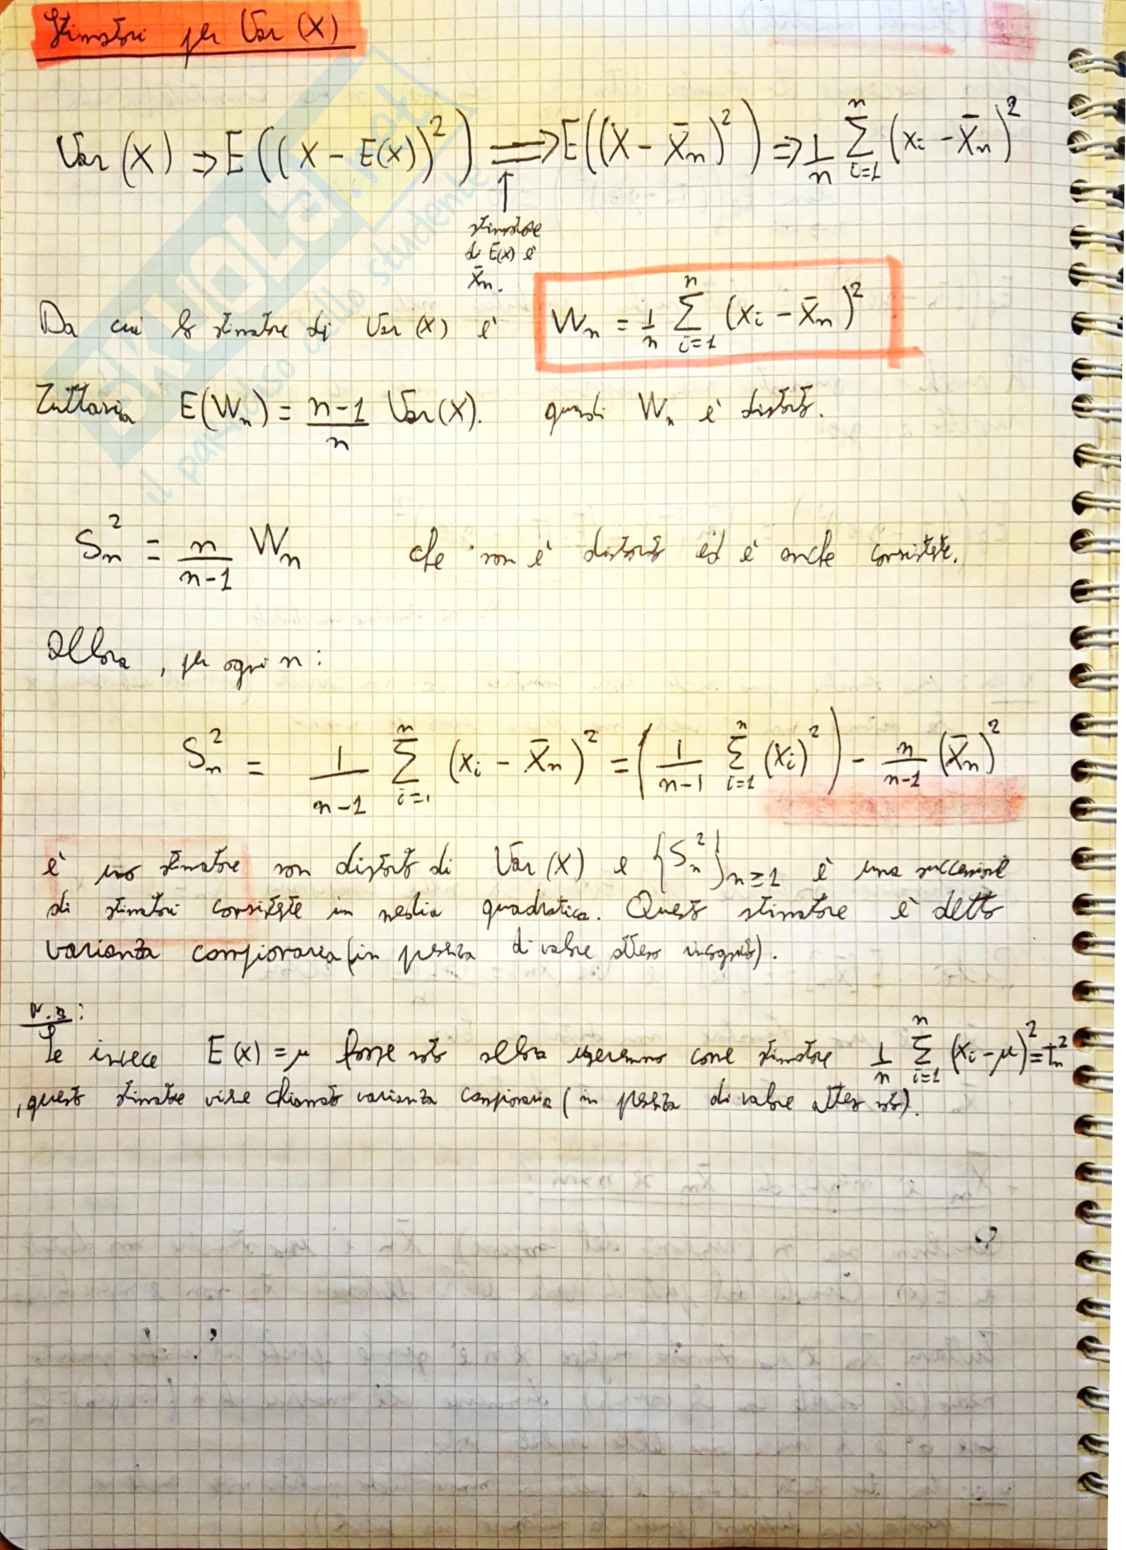 Stimatori per Var(X)
Var(X) ⇒ E((X − E(X))²) ⟹ E((X − X̄ₙ)²) ⇒ 1/n ∑ᵢ₌₁ⁿ (xᵢ − X̄ₙ)²
↑
stimatore
di E(X) è
X̄ₙ.
Da cui lo stimatore di Var(X) è Wₙ = 1/n ∑ᵢ₌₁ⁿ (xᵢ − X̄ₙ)²
Tuttavia E(Wₙ) = (n−1)/n Var(X). quindi Wₙ è distorto.
Sₙ² = n/(n−1) Wₙ che non è distorto ed è anche consistente.
Allora, per ogni n:
Sₙ² = 1/(n−1) ∑ᵢ₌₁ⁿ (xᵢ − X̄ₙ)² = (1/(n−1) ∑ᵢ₌₁ⁿ (xᵢ)²) − n/(n−1) (X̄ₙ)²
è uno stimatore non distorto di Var(X) e {Sₙ²}ₙ≥₁ è una successione
di stimatori consistente in media quadratica. Questo stimatore è detto
varianza campionaria (in presenza di valore atteso incognito).
N.B:
Se invece E(X) = μ fosse noto allora useremmo come stimatore 1/n ∑ᵢ₌₁ⁿ (xᵢ − μ)² = tₙ²
, questo stimatore viene chiamato varianza campionaria (in presenza di valore atteso noto).
SKUOLA.net
il paradiso dello studente